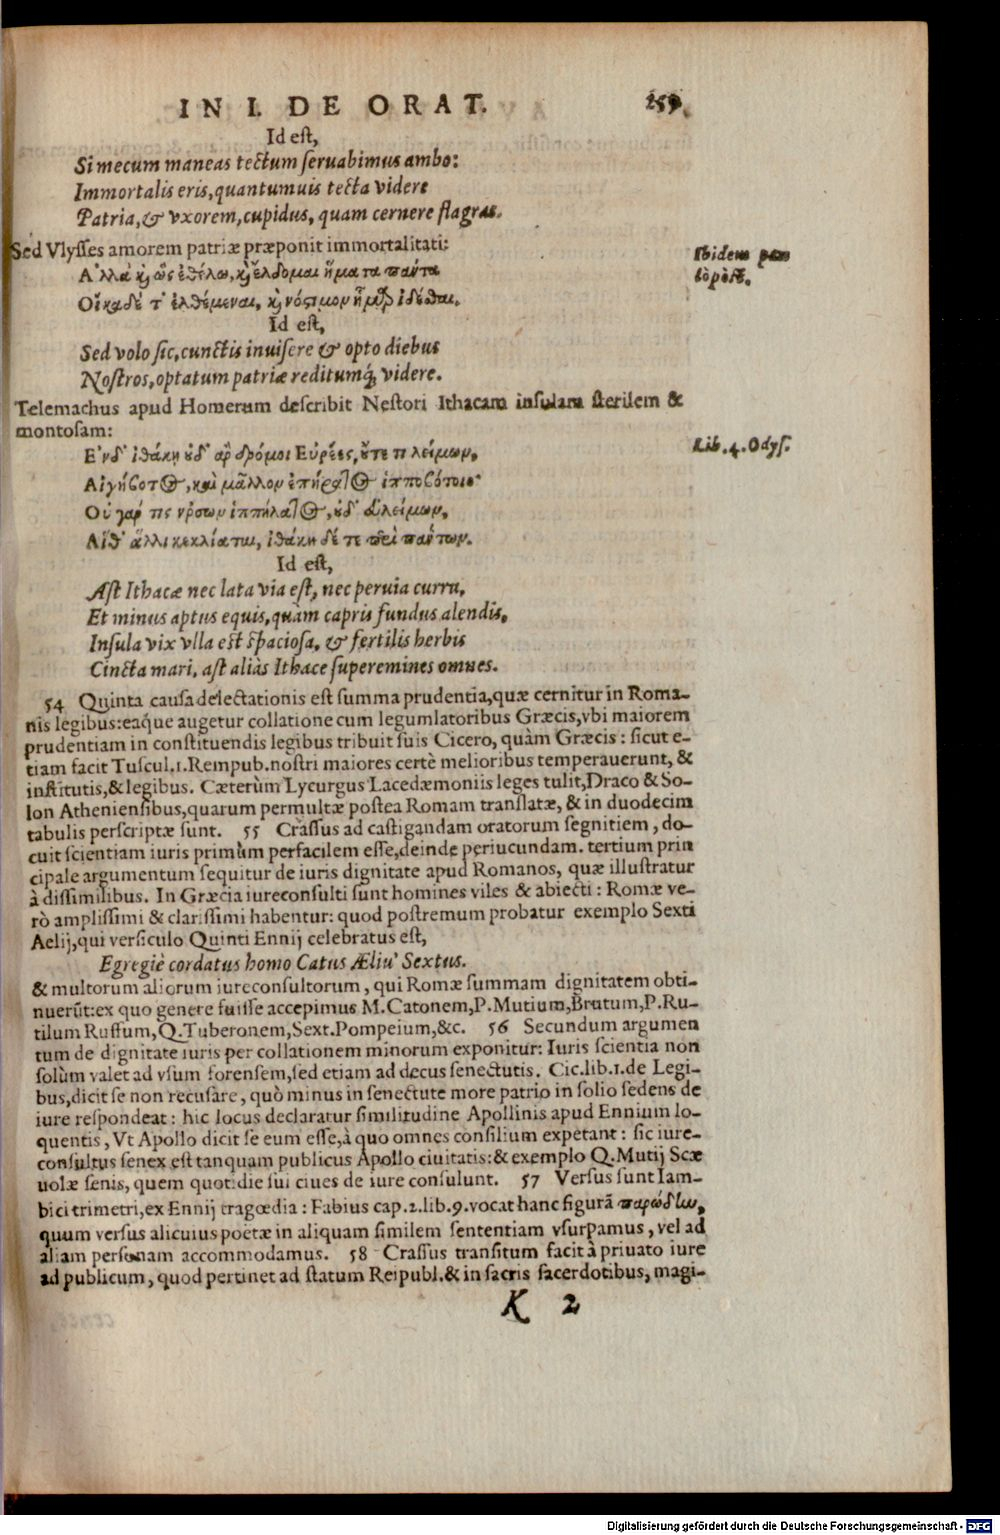 IN I. DE ORAT. 259
Id est,
Si mecum maneas tectum seruabimus ambo:
Immortalis eris, quantumuis tecta videre
Patria, & vxorem, cupidus, quam cernere flagras.
Sed Vlysses amorem patriæ præponit immortalitati:
Ibidem pau
lò pòst.
Αʼλλὰ καὶ ὣς ἐθέλω, καὶ ἔλδομαι ἤματα πάντα
Οἴκαδέ τʼ ἐλθέμεναι, καὶ νόστιμον ἦμαρ ἰδέσθαι.
Id est,
Sed volo sic, cunctis inuisere & opto diebus
Nostros, optatum patriæ reditumq́, videre.
Telemachus apud Homerum describit Nestori Ithacam insulam sterilem &
montosam:
Lib. 4. Odys.
Εʼν δʼ ἰθάκῃ οὐδʼ ἂρ δρόμοι Εὐρέες, οὔτε τι λείμων,
Αἰγίβοτος, καὶ μᾶλλον ἐπήρατος ἱπποβότοιο·
Οὐ γάρ τις νήσων ἱππήλατος, οὐδʼ εὐλείμων,
Αἵθʼ ἅλι κεκλίαται, ἰθάκη δέ τε περὶ πάντων.
Id est,
Ast Ithacæ nec lata via est, nec peruia curru,
Et minus aptus equis, quàm capris fundus alendis,
Insula vix vlla est spaciosa, & fertilis herbis
Cincta mari, ast aliàs Ithace superemines omnes.
54 Quinta causa delectationis est summa prudentia, quæ cernitur in Roma-
nis legibus: eaque augetur collatione cum legumlatoribus Græcis, vbi maiorem
prudentiam in constituendis legibus tribuit suis Cicero, quàm Græcis: sicut e-
tiam facit Tuscul. 1. Rempub. nostri maiores certè melioribus temperauerunt, &
institutis, & legibus. Cæterùm Lycurgus Lacedæmoniis leges tulit, Draco & So-
lon Atheniensibus, quarum permultæ postea Romam translatæ, & in duodecim
tabulis perscriptæ sunt. 55 Crassus ad castigandam oratorum segnitiem, do-
cuit scientiam iuris primùm perfacilem esse, deinde periucundam. tertium prin
cipale argumentum sequitur de iuris dignitate apud Romanos, quæ illustratur
à dissimilibus. In Græcia iureconsulti sunt homines viles & abiecti: Romæ ve-
rò amplissimi & clarissimi habentur: quod postremum probatur exemplo Sexti
Aelij, qui versiculo Quinti Ennij celebratus est,
Egregiè cordatus homo Catus Æliu' Sextus.
& multorum aliorum iureconsultorum, qui Romæ summam dignitatem obti-
nuerũt: ex quo genere fuisse accepimus M. Catonem, P. Mutium, Brutum, P. Ru-
tilum Ruffum, Q. Tuberonem, Sext. Pompeium, &c. 56 Secundum argumen
tum de dignitate iuris per collationem minorum exponitur: Iuris scientia non
solùm valet ad vsum forensem, sed etiam ad decus senectutis. Cic. lib. 1. de Legi-
bus, dicit se non recusare, quò minus in senectute more patrio in solio sedens de
iure respondeat: hic locus declaratur similitudine Apollinis apud Ennium lo-
quentis, Vt Apollo dicit se eum esse, à quo omnes consilium expetant: sic iure-
consultus senex est tanquam publicus Apollo ciuitatis: & exemplo Q. Mutij Scæ
uolæ senis, quem quotidie sui ciues de iure consulunt. 57 Versus sunt Iam-
bici trimetri, ex Ennij tragœdia: Fabius cap. 2. lib. 9. vocat hanc figurã παρῳδίαν,
quum versus alicuius poëtæ in aliquam similem sententiam vsurpamus, vel ad
aliam personam accommodamus. 58 Crassus transitum facit à priuato iure
ad publicum, quod pertinet ad statum Reipubl. & in sacris sacerdotibus, magi-
K 2
Digitalisierung gefördert durch die Deutsche Forschungsgemeinschaft - DFG